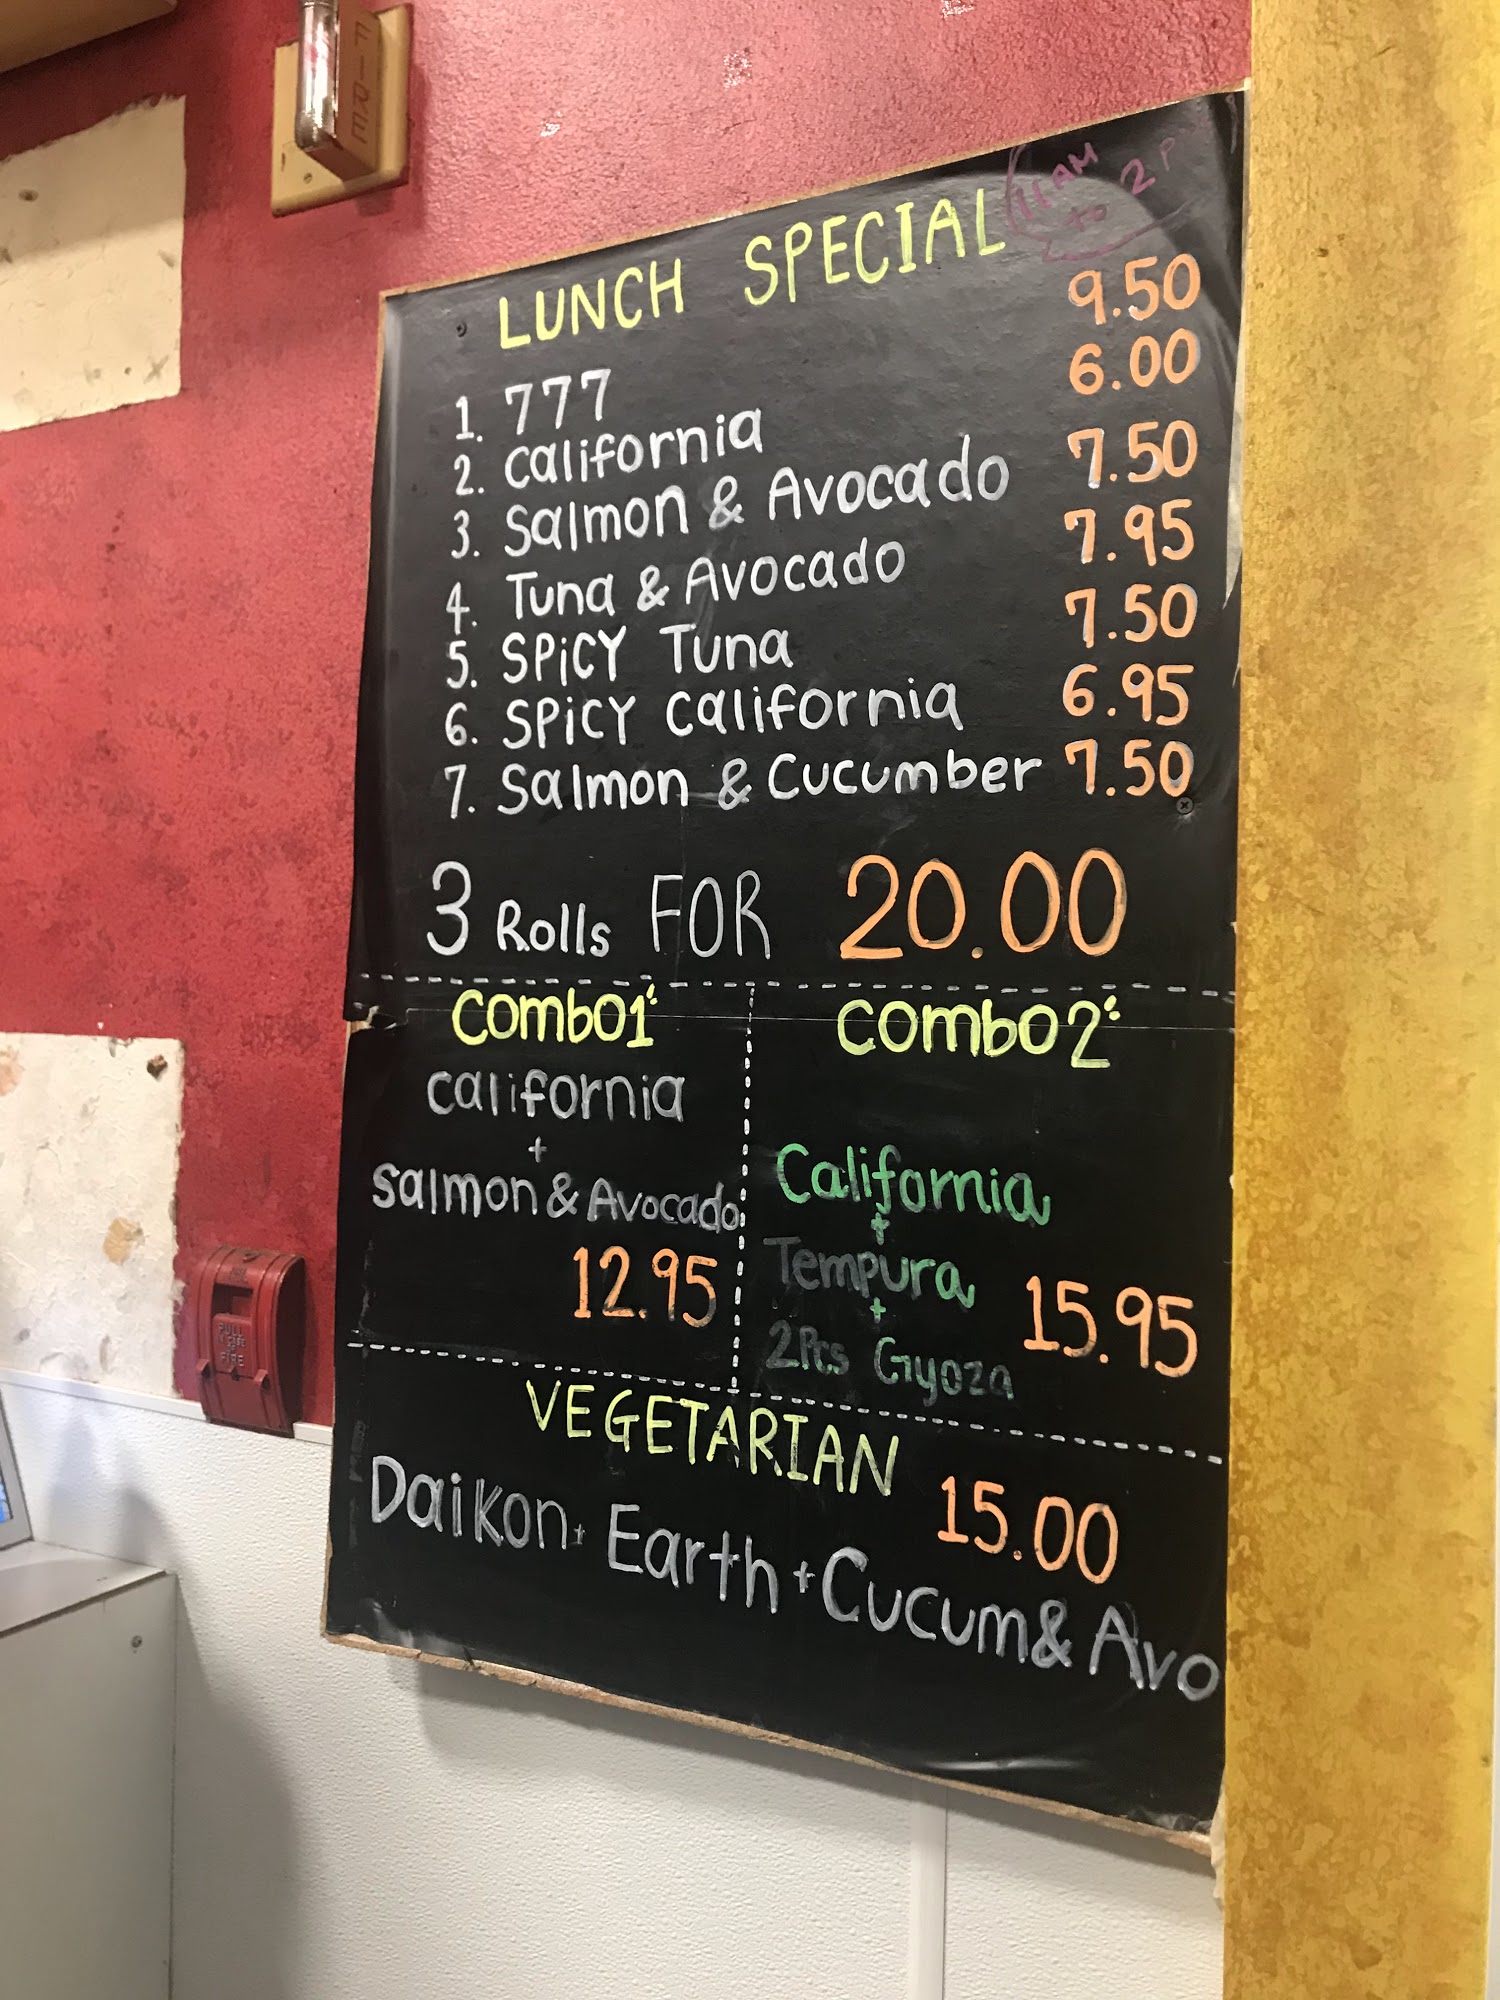 FIRE
11AM to 2P
LUNCH SPECIAL
1. 777 9.50
2. California 6.00
3. Salmon & Avocado 7.50
4. Tuna & Avocado 7.95
5. SPiCY Tuna 7.50
6. SPiCY California 6.95
7. Salmon & Cucumber 7.50
3 Rolls FOR 20.00
Combo1:
California
+
Salmon & Avocado
12.95
Combo2:
California
+
Tempura
+
2Pcs Gyoza
15.95
VEGETARIAN 15.00
Daikon + Earth + Cucum & Avo
PULL
FIRE